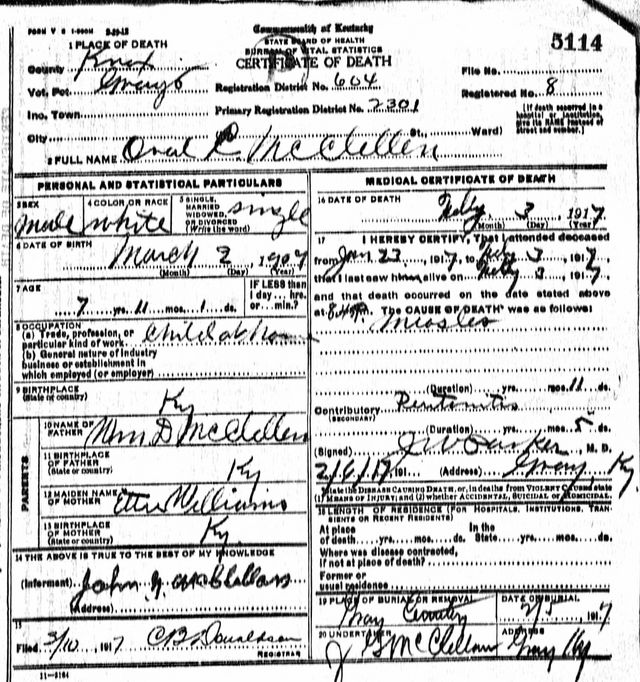 FORM V S 1-500M 2-10-12
Commonwealth of Kentucky
STATE BOARD OF HEALTH
BUREAU OF VITAL STATISTICS
CERTIFICATE OF DEATH
5114
1 PLACE OF DEATH
County Knox
Vot. Pct Grays
Ino. Town
City
Registration District No. 604
Primary Registration District No. 2301
St., Ward)
File No.
Registered No. 8
[If death occurred in a hospital or institution, give its NAME instead of street and number.]
2 FULL NAME Oval C McClellen
PERSONAL AND STATISTICAL PARTICULARS
3 SEX male
4 COLOR OR RACE white
5 SINGLE, MARRIED WIDOWED, OR DIVORCED (Write the word) single
6 DATE OF BIRTH
March 2 1907
(Month) (Day) (Year)
7 AGE
7 yrs. 11 mos. 1 ds.
IF LESS than 1 day... hrs. or... min.?
8 OCCUPATION
(a) Trade, profession, or particular kind of work Child at home
(b) General nature of industry business or establishment in which employed (or employer)
9 BIRTHPLACE
(State or country) Ky
PARENTS
10 NAME OF FATHER Wm D McClellen
11 BIRTHPLACE OF FATHER
(State or country) Ky
12 MAIDEN NAME OF MOTHER Etta Williams
13 BIRTHPLACE OF MOTHER
(State or country) Ky.
14 THE ABOVE IS TRUE TO THE BEST OF MY KNOWLEDGE
(Informant) John G McClellan
(Address)
15
Filed 3/10, 1917 C B Donaldson
REGISTRAR
11-3184
MEDICAL CERTIFICATE OF DEATH
16 DATE OF DEATH
Feby 3 1917
(Month) (Day) (Year)
17 I HEREBY CERTIFY, That I attended deceased
from Jan 23 1917, to Feby 3, 1917
that I last saw him alive on Feby 3, 1917
and that death occurred on the date stated above
at 8:40 P.m. The CAUSE OF DEATH was as follows:
Measles
(Duration) yrs. mos. 11 ds.
Contributory Peritonitis
(SECONDARY)
(Duration) yrs. mos. 5 ds.
(Signed) J W Parker, M. D.
2/6/17 191 (Address) Gray Ky
State the DISEASE CAUSING DEATH, or, in deaths from VIOLENT CAUSES state (1) MEANS OF INJURY; and (2) whether ACCIDENTAL, SUICIDAL or HOMICIDAL.
18 LENGTH OF RESIDENCE (FOR HOSPITALS, INSTITUTIONS, TRANSIENTS OR RECENT RESIDENTS)
At place of death yrs. mos. ds. In the State yrs. mos. ds.
Where was disease contracted,
if not at place of death?
Former or
usual residence
19 PLACE OF BURIAL OR REMOVAL
Gray Cemetery
DATE OF BURIAL
2/5, 1917
20 UNDERTAKER
J G McClellan
ADDRESS
Gray Ky